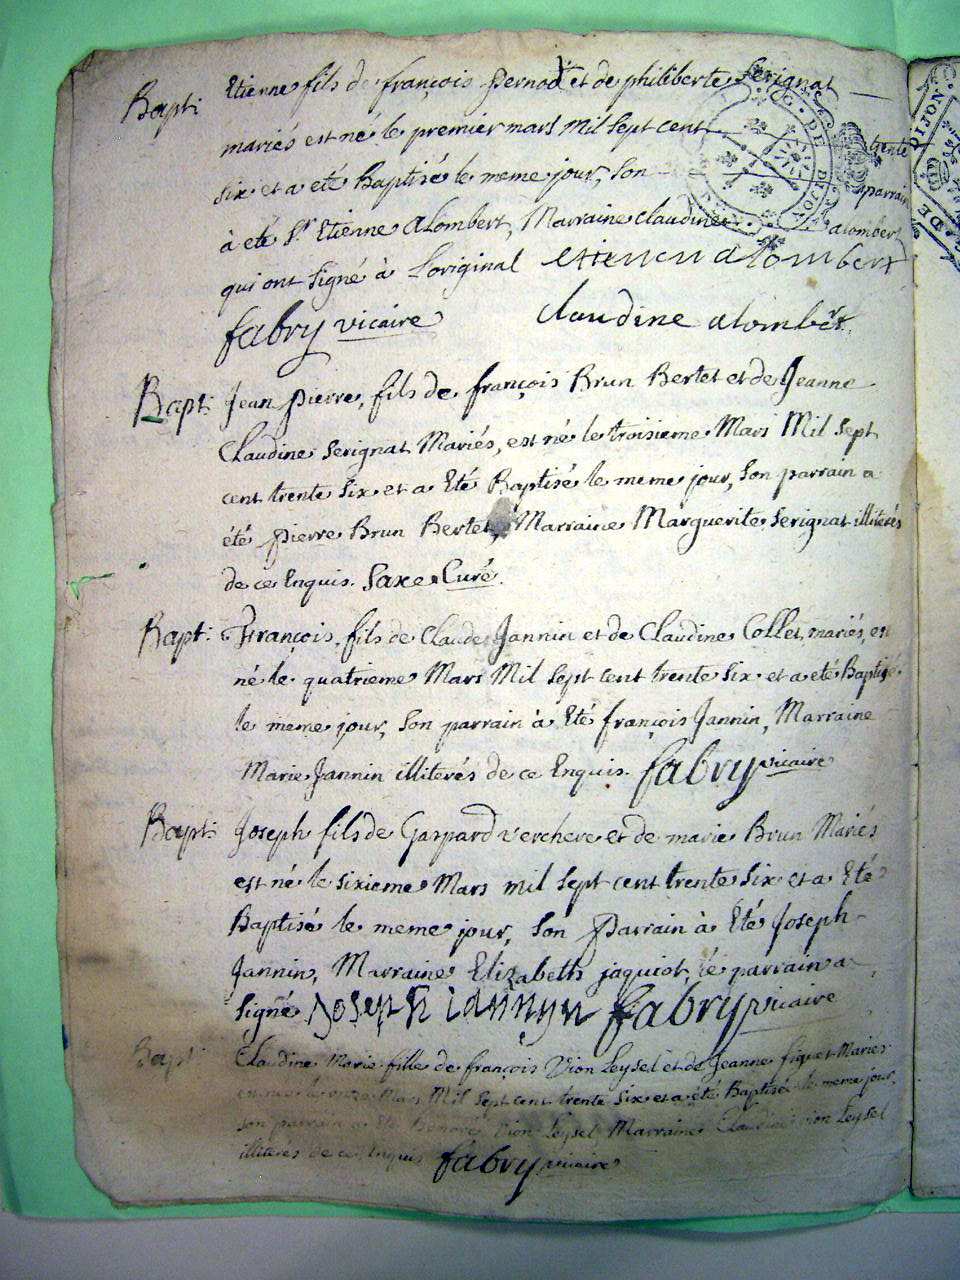 Bapt: Etienne fils de françois Pernod et de philiberte Serignat
mariés est né le premier mars Mil Sept cent trente
six et a eté Baptisé le meme jour, Son parrain
à eté Sr Etienne Alombert, Marraine Claudine alombert
qui ont Signé à L'original etienen alombert
fabry vicaire claudine alombert
G. DE DIJON
DE DIJON
Bapt: Jean pierre, fils de françois Brun Bertet et de Jeanne
Claudine Serignat Mariés, est né le troisieme Mars Mil Sept
cent trente Six et a Eté Baptisé le meme jour, Son parrain a
été pierre Brun Bertet, Marraine Marguerite Serignat illiterés
de ce Enquis. Saxe Curé.
Bapt: François fils de Claude Jannin et de Claudine Collet, mariés, est
né le quatrieme Mars Mil Sept Cent trente Six et a eté Baptisé
le meme jour, Son parrain à Eté françois Jannin, Marraine
Marie Jannin illiterés de ce Enquis. fabry vicaire
Bapt: Joseph fils de Gaspard verchere et de marie Brun Mariés
est né le sixieme Mars mil Sept cent trente Six et a Eté
Baptisé le meme jour, Son Parrain à Eté Joseph
Jannin, Marraine Elizabeth jaquiot, le parrain a
Signé Joseph iannyn fabry vicaire
Bapt: Claudine Marie fille de françois Vion Leysel et de Jeanne figuet Mariés
est née le onze Mars Mil Sept cent trente Six et a été Baptisée le meme jour,
son parrain a Eté Vion Leysel, Marraine Claudine vion Leysel
illiteres de ce Enquis fabry vicaire